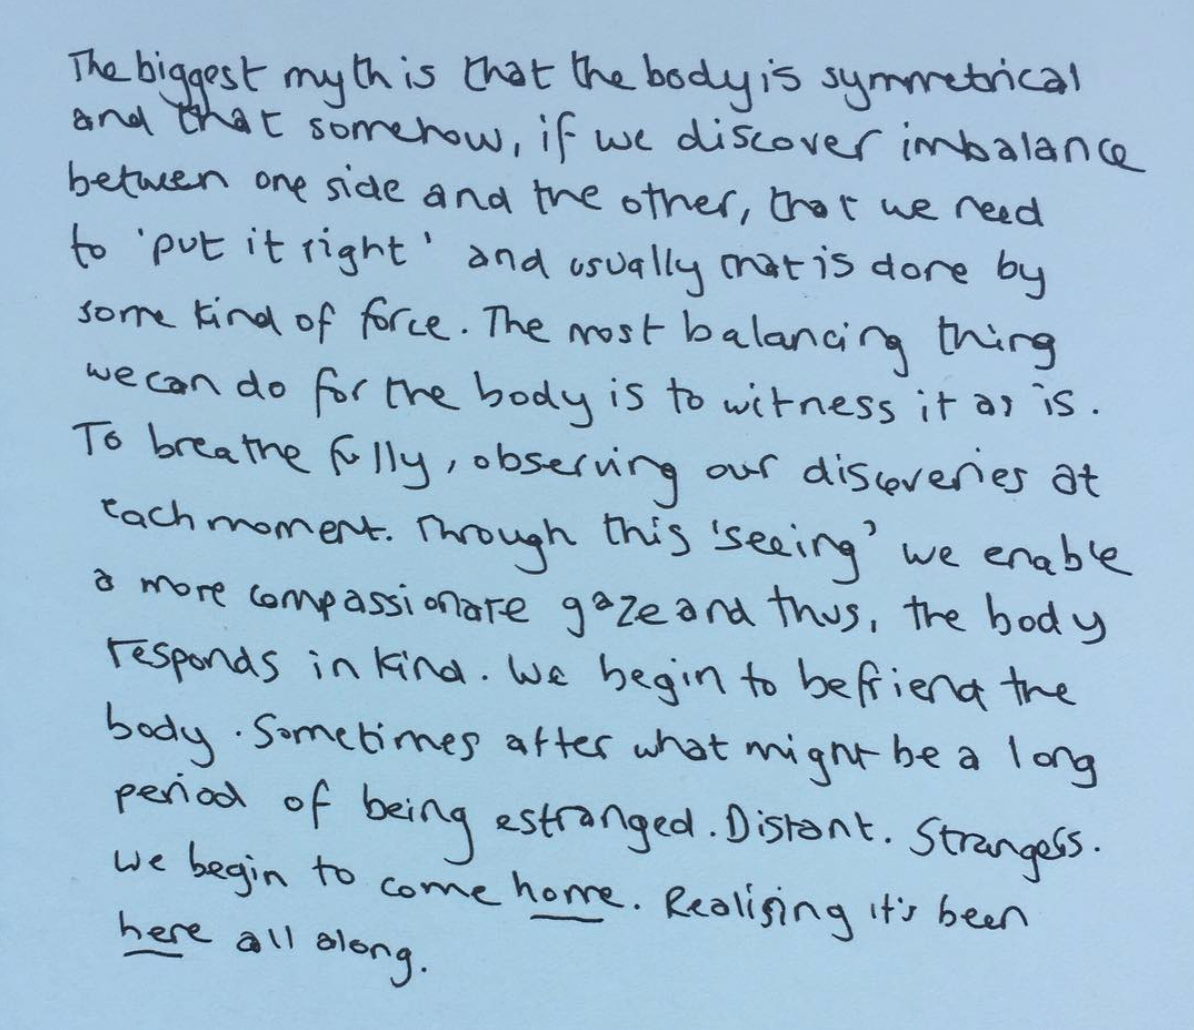 The biggest myth is that the body is symmetrical
and that somehow, if we discover imbalance
between one side and the other, that we need
to 'put it right' and usually that is done by
some kind of force. The most balancing thing
we can do for the body is to witness it as is.
To breathe fully, observing our discoveries at
each moment. Through this 'seeing' we enable
a more compassionate gaze and thus, the body
responds in kind. We begin to befriend the
body. Sometimes after what might be a long
period of being estranged. Distant. Strangers.
We begin to come home. Realising it's been
here all along.